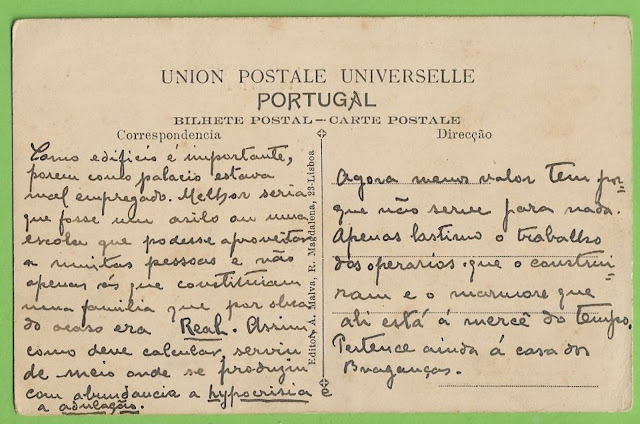 UNION POSTALE UNIVERSELLE
PORTUGAL
BILHETE POSTAL—CARTE POSTALE
Correspondencia
Direcção
Como edificio é importante,
porem como palacio estava
mal empregado. Melhor seria
que fosse um asilo ou uma
escola que podesse aproveitar
a muitas pessoas e não
apenas ás que constituiam
uma familia que por obra
do acaso era Real. Assim
como deve calcular, serviu
de meio onde se produziu
com abundancia a hypocrisia e
a adulação.
Editor, A. Malva, R. Magdalena, 23-Lisboa
Agora menos valor tem por=
que não serve para nada.
Apenas lastimo o trabalho
dos operarios que o construi=
ram e o marmore que
ali está á mercê do tempo,
Pertence ainda á casa dos
Braganças.